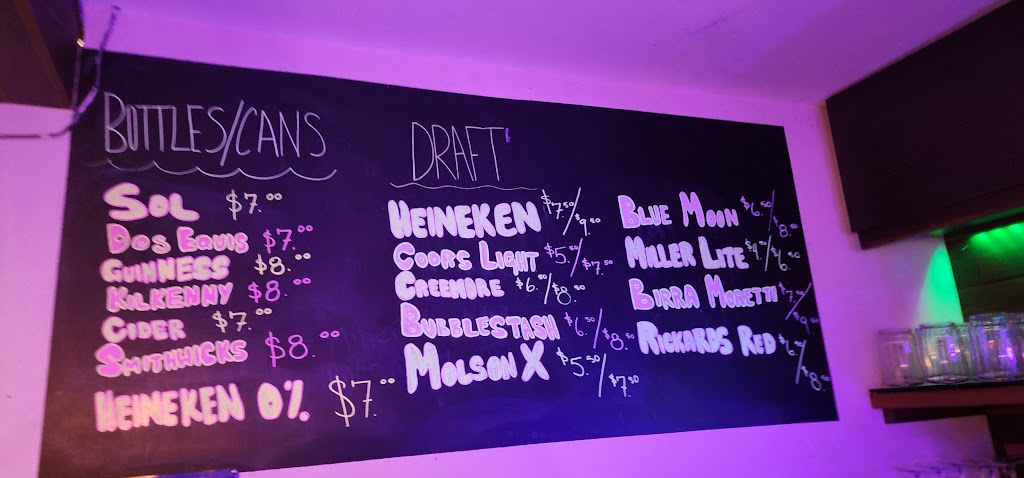 BOTTLES/CANS
SOL $7.00
DOS EQUIS $7.00
GUINNESS $8.00
KILKENNY $8.00
CIDER $7.00
SMITHWICKS $8.00
HEINEKEN 0% $7.00
DRAFT
HEINEKEN $7.50/$9.50
COORS LIGHT $5.50/$7.50
CREEMORE $6.50/$8.50
BUBBLESTASH $6.50/$8.50
MOLSON X $5.50/$7.50
BLUE MOON $6.50/$8.50
MILLER LITE
BIRRA MORETTI $7.50/$9.50
RICKARDS RED $6.50/$8.50